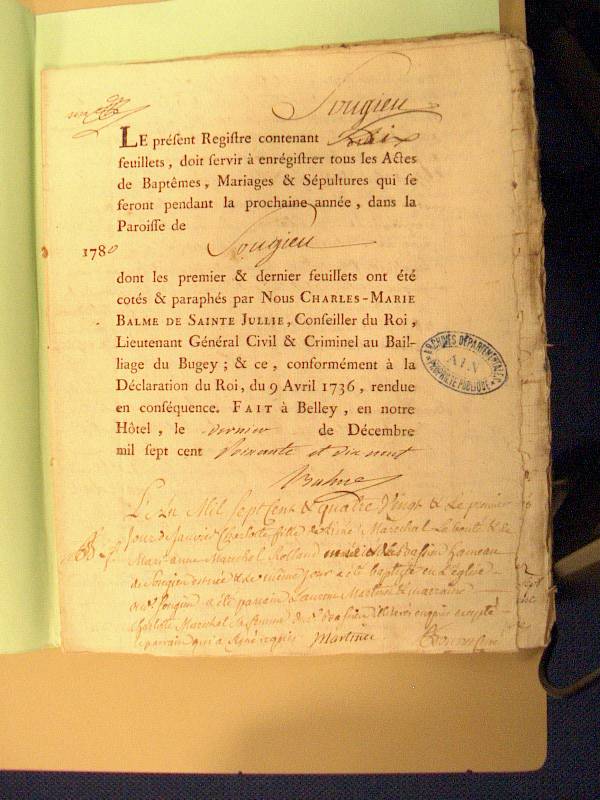 Songieu
LE préſent Regiſtre contenant Six
feuillets, doit ſervir à enrégiſtrer tous les Actes
de Baptêmes, Mariages & Sépultures qui ſe
feront pendant la prochaine année, dans la
Paroiſſe de
Songieu
1780
dont les premier & dernier feuillets ont été
cotés & paraphés par Nous CHARLES-MARIE
BALME DE SAINTE JULLIE, Conſeiller du Roi,
Lieutenant Général Civil & Criminel au Bail-
liage du Bugey; & ce, conformément à la
Déclaration du Roi, du 9 Avril 1736, rendue
en conſéquence. FAIT à Belley, en notre
Hôtel, le dernier de Décembre
mil ſept cent Soixante et dix neuf
Balme
ARCHIVES DÉPARTEMENTALES
AIN
PROPRIÉTÉ PUBLIQUE
L'An Mil Sept Cent & quatre Vingt & Le premier
jour de Janvier Charlotte fille de Aimé Marechal
Marianne Marechal Rolland hameau
de Songieu & Le même jour a été baptisée en L'église
dud Songieu a été parrain Laurent Martinet & marraine
Charlotte Marechal Sa femme
Le parrain qui a signé requis Martinet